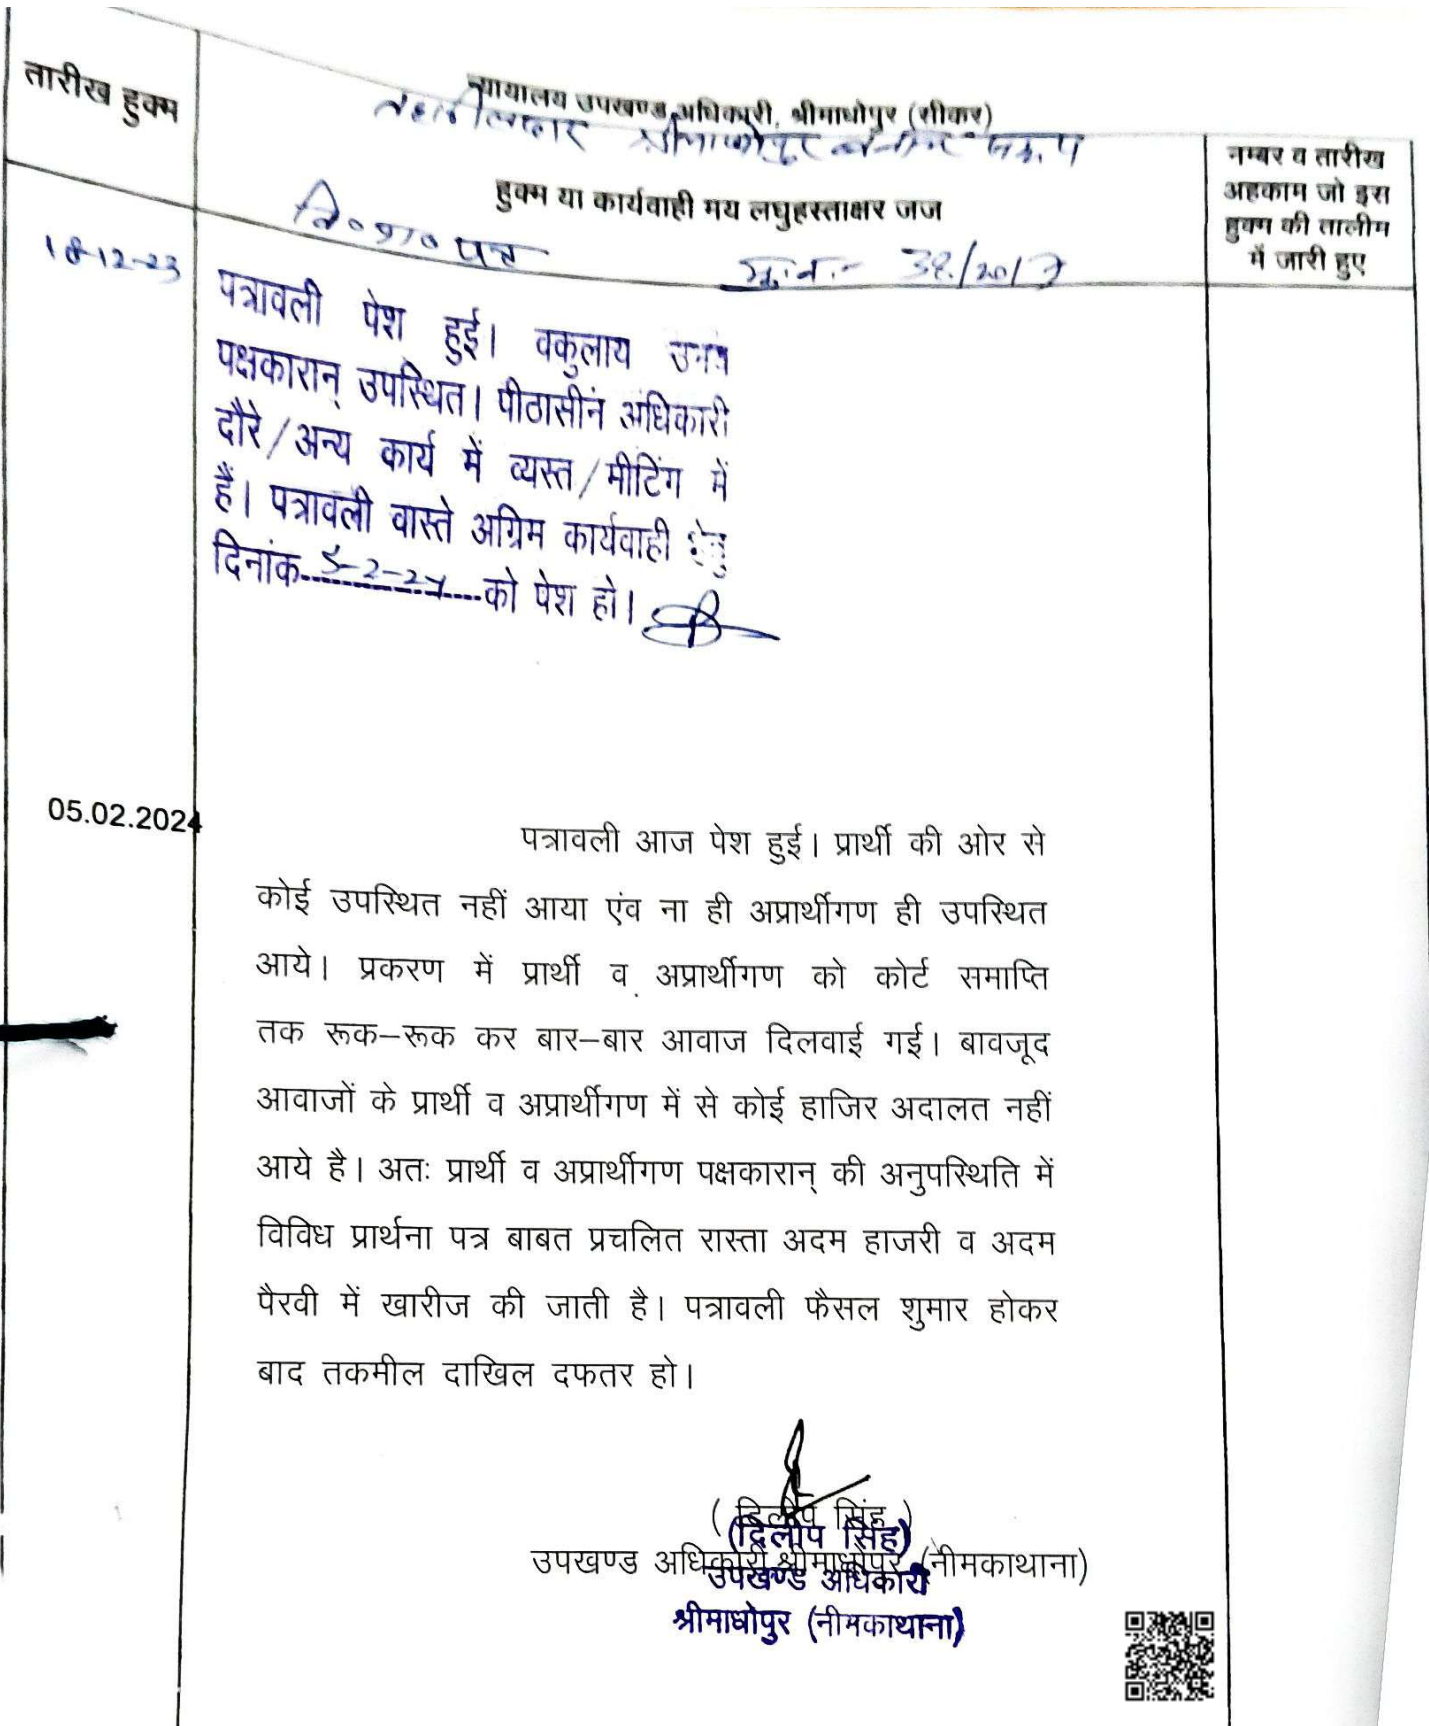 तारीख हुक्म
न्यायालय उपखण्ड अधिकारी, श्रीमाधोपुर (सीकर)
तहसीलदार श्रीमाधोपुर बनाम
नम्बर व तारीख
अहकाम जो इस
हुक्म की तालीम
में जारी हुए
हुक्म या कार्यवाही मय लघुहस्ताक्षर जज
वि० प्रा० पत्र
मु.नं.:- 38/2017
18-12-23
पत्रावली पेश हुई। वकुलाय उभय
पक्षकारान् उपस्थित। पीठासीन अधिकारी
दौरे/अन्य कार्य में व्यस्त/मीटिंग में
हैं। पत्रावली वास्ते अग्रिम कार्यवाही हेतु
दिनांक 5-2-24 को पेश हो।
05.02.2024
पत्रावली आज पेश हुई। प्रार्थी की ओर से
कोई उपस्थित नहीं आया एंव ना ही अप्रार्थीगण ही उपस्थित
आये। प्रकरण में प्रार्थी व अप्रार्थीगण को कोर्ट समाप्ति
तक रूक–रूक कर बार–बार आवाज दिलवाई गई। बावजूद
आवाजों के प्रार्थी व अप्रार्थीगण में से कोई हाजिर अदालत नहीं
आये है। अतः प्रार्थी व अप्रार्थीगण पक्षकारान् की अनुपस्थिति में
विविध प्रार्थना पत्र बाबत प्रचलित रास्ता अदम हाजरी व अदम
पैरवी में खारीज की जाती है। पत्रावली फैसल शुमार होकर
बाद तकमील दाखिल दफतर हो।
( दिलीप सिंह )
(दिलीप सिंह)
उपखण्ड अधिकारी श्रीमाधोपुर (नीमकाथाना)
उपखण्ड अधिकारी
श्रीमाधोपुर (नीमकाथाना)